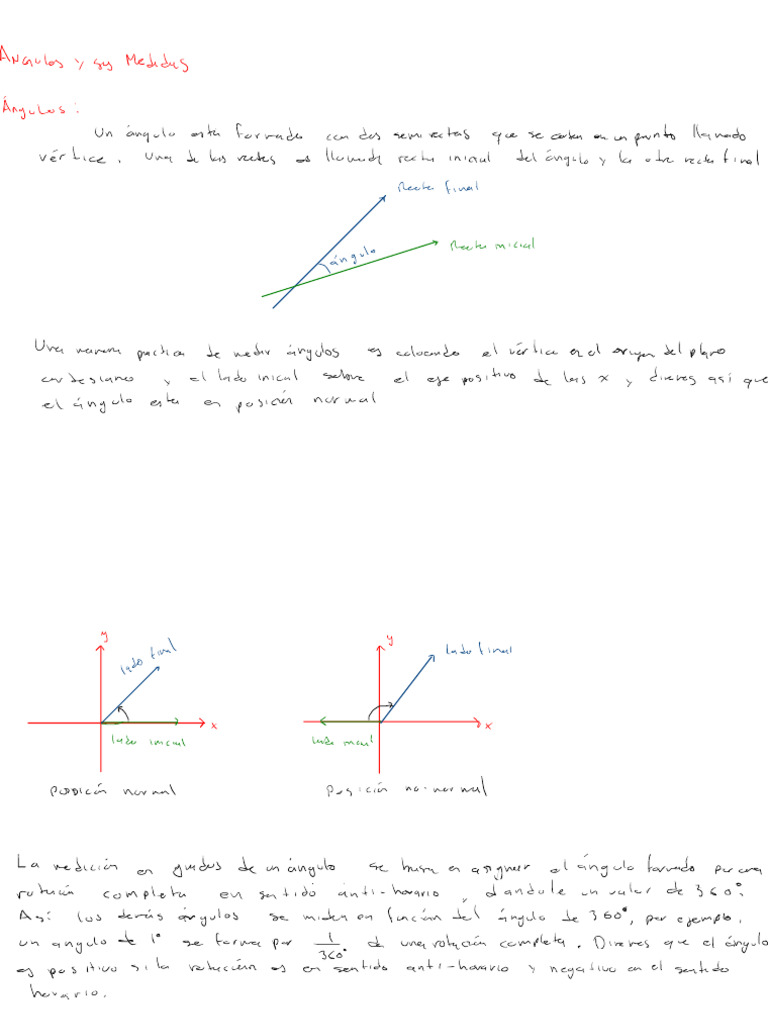 Ángulos y sus Medidas
Ángulos:
Un ángulo esta formado con dos semirectas que se cortan en un punto llamado
vértice. Una de las rectas es llamada recta inicial del ángulo y la otra recta final
Recta final
Recta inicial
ángulo
Una manera practica de medir ángulos es colocando el vértice en el origen del plano
cartesiano y el lado inicial sobre el eje positivo de las x y diremos así que
el ángulo esta en posición normal
y
lado final
x
lado inicial
posición normal
y
lado final
x
lado inicial
posición no-normal
La medición en grados de un ángulo se basa en asignar al ángulo formado por una
rotación completa en sentido anti-horario, dandole un valor de 360°.
Así los demás ángulos se miden en función del ángulo de 360°, por ejemplo,
un angulo de 1° se forma por 1/360° de una rotación completa. Diremos que el ángulo
es positivo si la rotación es en sentido anti-horario y negativo en el sentido
horario.